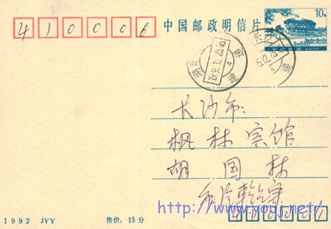 410006
中国邮政明信片
10分
长沙市:
枫林宾馆
胡国林
http://www.youj.net/
1992 JYY
售价:15分